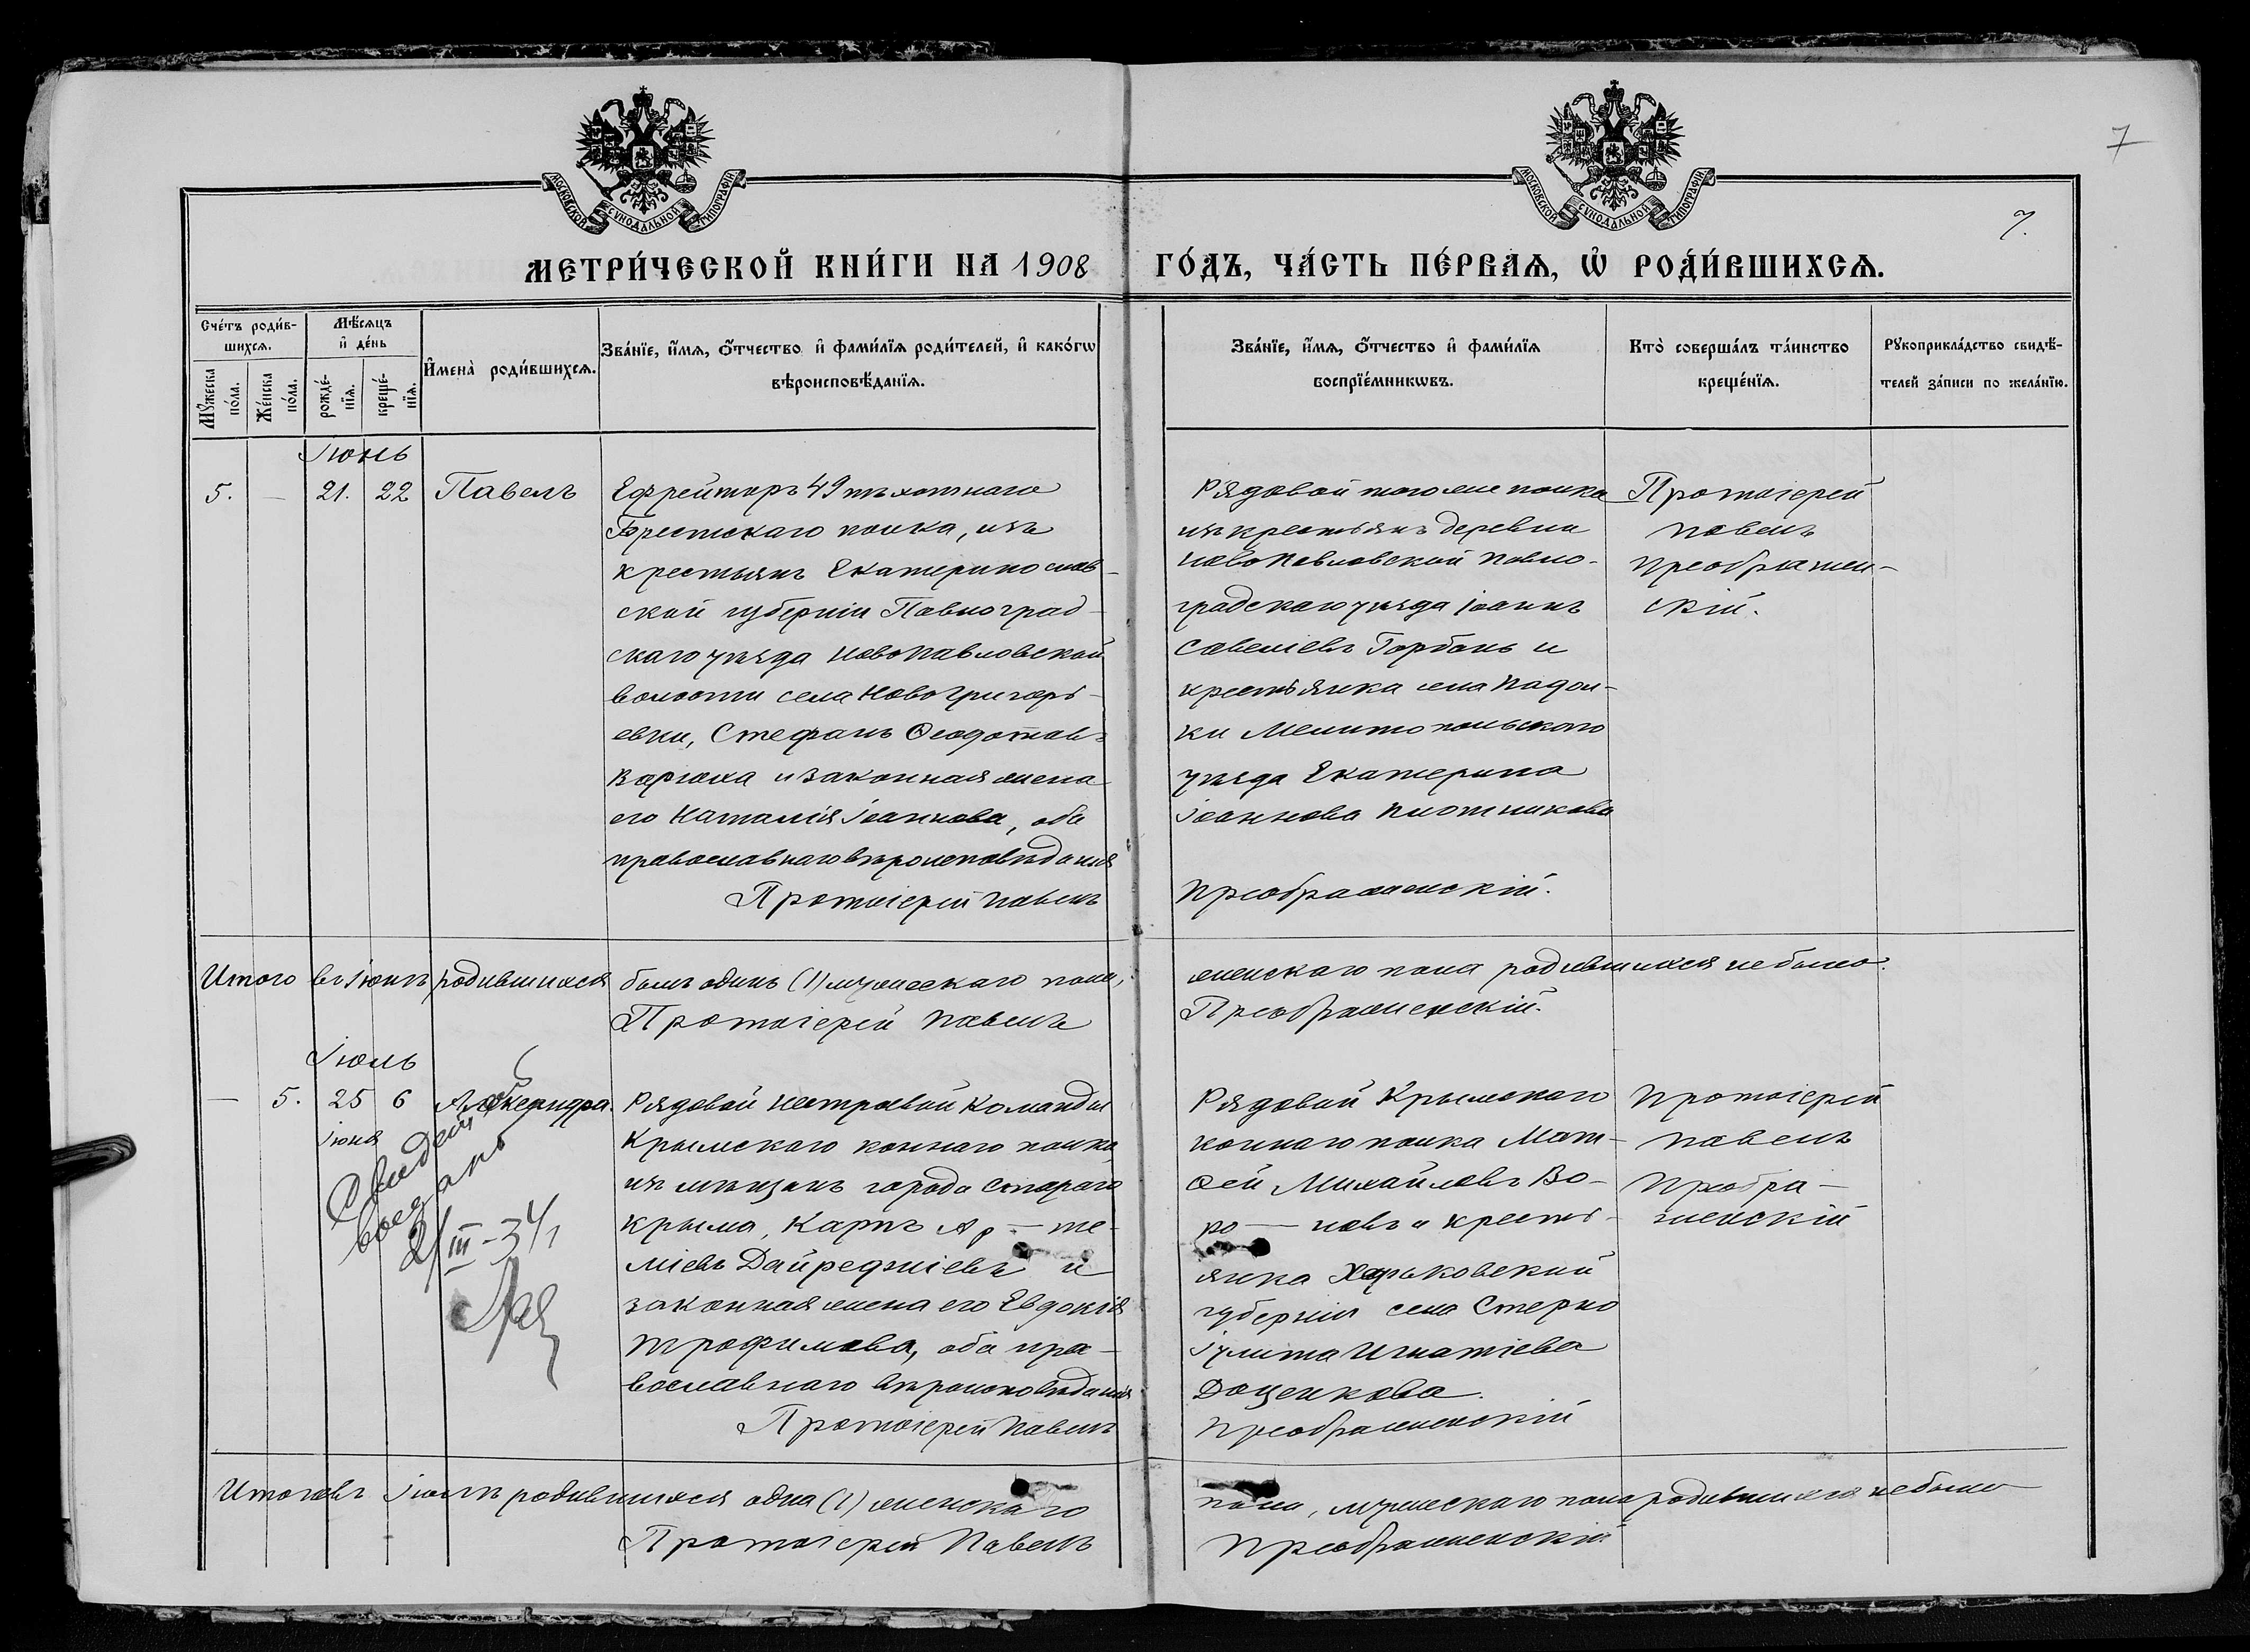 МОСКОВСКОЙ СѴНОДАЛЬНОЙ ТИПОГРАФІИ
МОСКОВСКОЙ СѴНОДАЛЬНОЙ ТИПОГРАФІИ
7
7.
МЕТРИ́ЧЕСКОЙ КНИ́ГИ НА 1908
ГО́ДЪ, ЧА́СТЬ ПЕ́РВАѦ, Ѡ҆ РОДИ́ВШИХСѦ.
Сче́тъ роди́в-
шихсѧ.
Мꙋ́жеска
по́ла.
Же́нска
по́ла.
Мѣ́сѧцъ
и҆ де́нь
рожде́-
нїѧ.
креще́-
нїѧ.
И҆мена̀ роди́вшихсѧ.
Зва́нїе, и҆́мѧ, ѻ҆́тчество и҆ фами́лїѧ роди́телей, и҆ како́гѡ
вѣроисповѣ́данїѧ.
Зва́нїе, и҆́мѧ, ѻ҆́тчество и҆ фами́лїѧ
воспрїе́мникѡвъ.
Кто̀ соверша́лъ та́инство
креще́нїѧ.
Рꙋкоприкла́дство свидѣ́-
телей за́писи по жела́нїю.
Іюнь
5. — 21. 22 Павелъ
Ефрейторъ 49 пѣхотнаго
Брестскаго полка, изъ
крестьянъ Екатеринослав-
ской губерніи Павлоград-
скаго уѣзда Новопавловской
волости села Новогригорь-
евки, Стефанъ Ѳеодотовъ
и законная жена
его Наталія Іоаннова, оба
православнаго вѣроисповѣданія
Протоіерей Павелъ
Рядовой того же полка
изъ крестьянъ деревни
Новопавловской Павло-
градскаго уѣзда Іоаннъ
Савеліевъ Горбань и
крестьянка села Подол-
ки Мелитопольскаго
уѣзда Екатерина
Іоаннова Плотникова
Преображенскій.
Протоіерей
Павелъ
Преображен-
скій.
Итого въ Іюнѣ родившихся былъ одинъ (1) мужескаго пола,
женскаго пола родившихся не было.
Протоіерей Павелъ
Преображенскій.
Іюль
— 5. 25 6 Александра.
Іюня
Свидет
выдано
2/III-34
Рядовой нестроевой команды
Крымскаго коннаго полка,
изъ мѣщанъ города Стараго
Крыма, Карпъ Ар — те-
міевъ Дайреджіевъ и
законная жена его Евдокія
Трофимова, оба пра-
вославнаго вѣроисповѣданія
Протоіерей Павелъ
Рядовой Крымскаго
коннаго полка Мат-
ѳей Михайловъ Во-
ро — новъ и кресть-
янка Харьковской
губерніи села Стерно
Іулита Игнатіева
Доценкова.
Преображенскій
Протоіерей
Павелъ
Преобра-
женскій
Итого въ Іюлѣ родившихся одна (1) женскаго
пола, мужескаго пола родившихся не было
Протоіерей Павелъ
Преображенскій